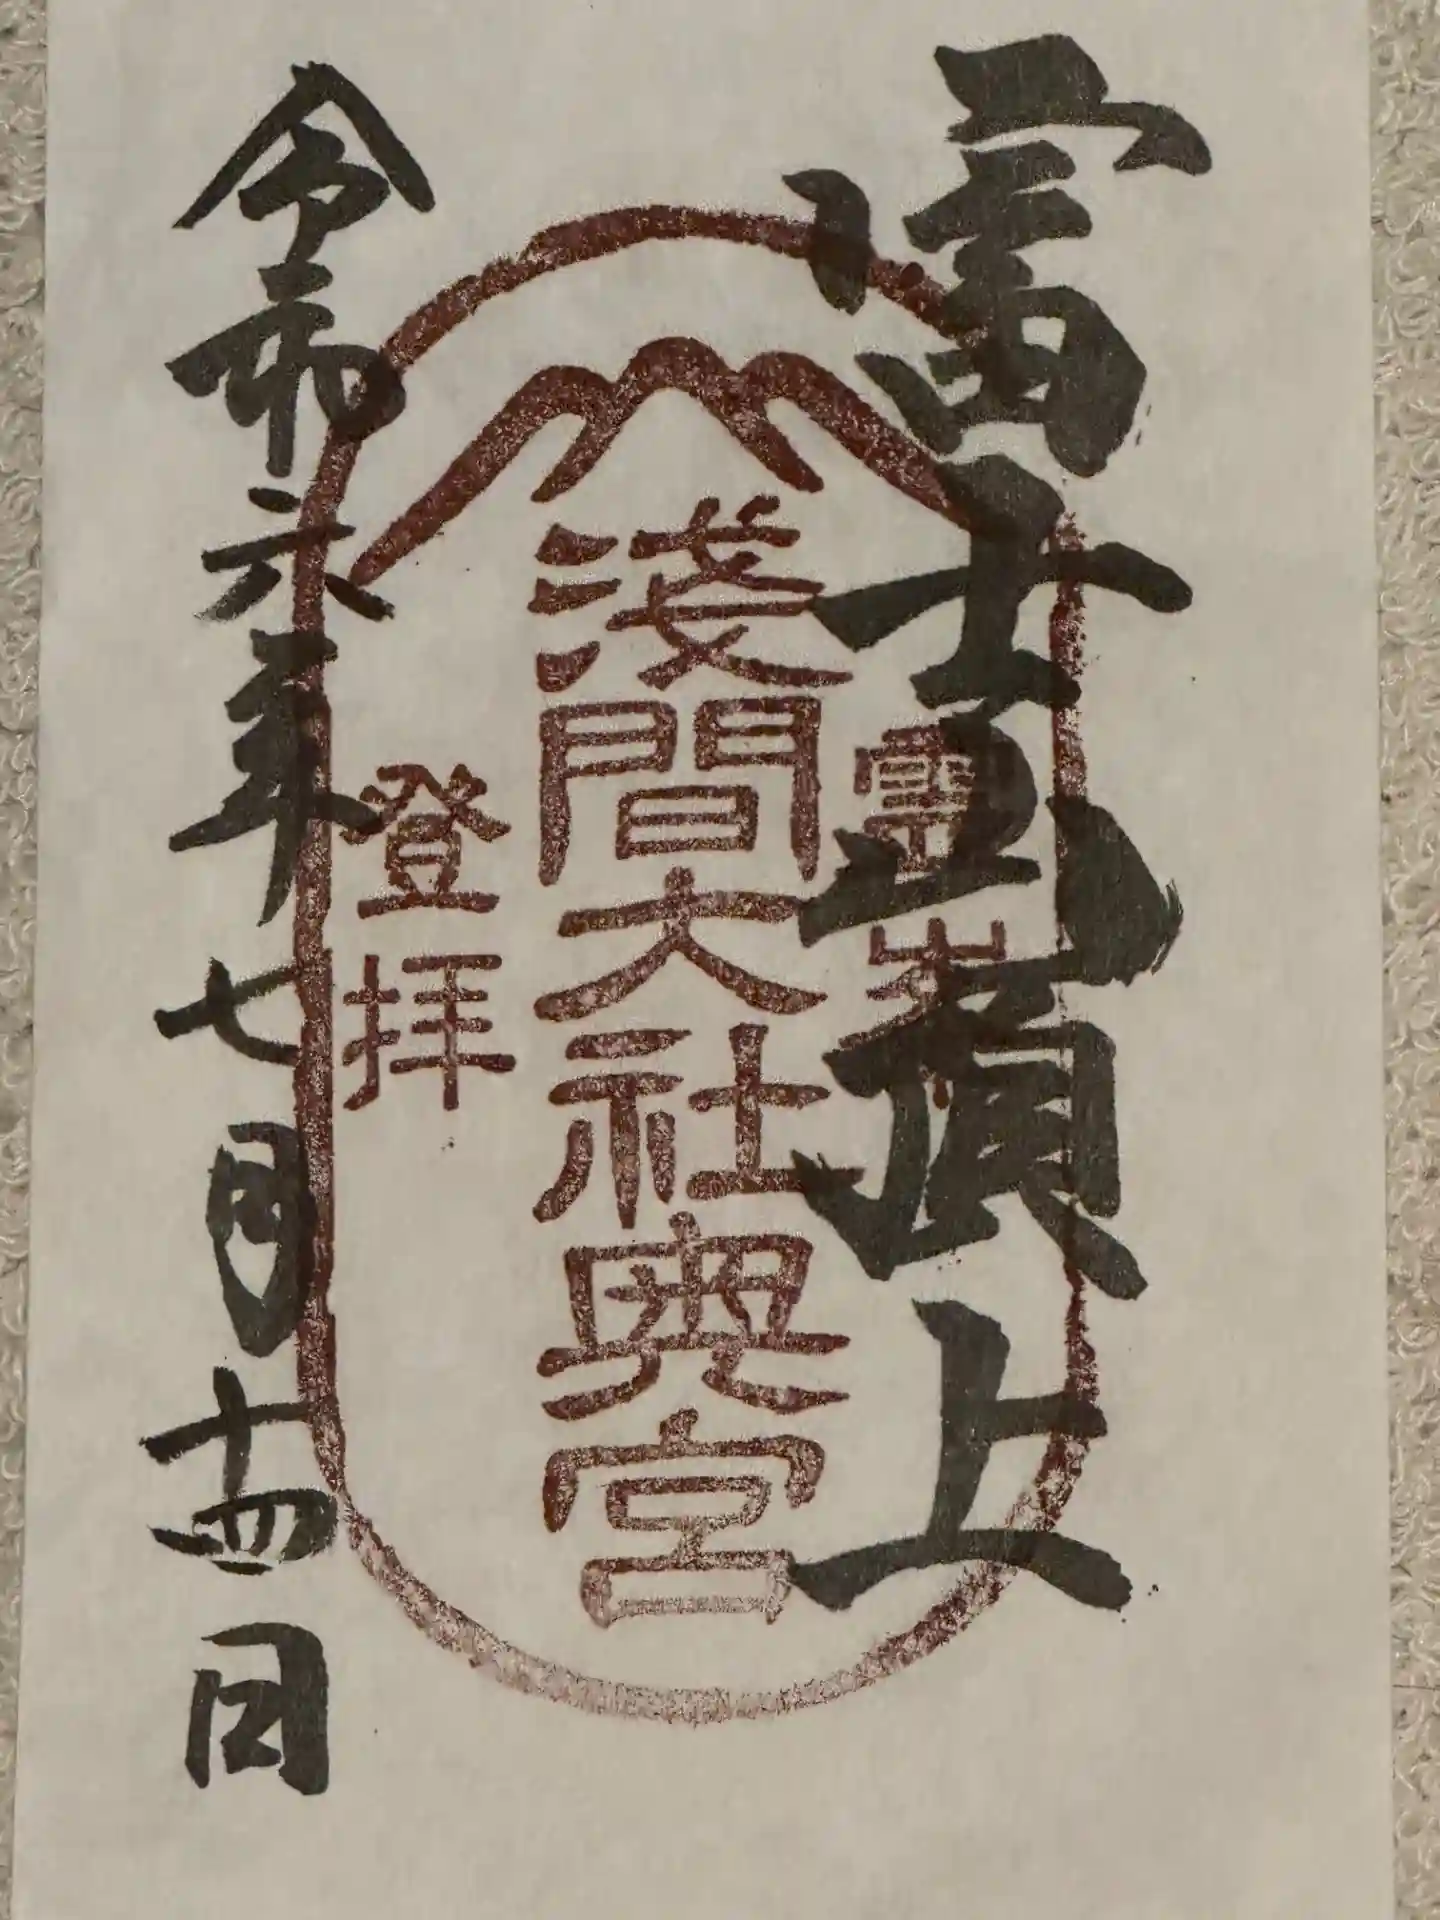 富士山頂上
靈峯
淺間大社奥宮
登拝
令和六年七月十四日